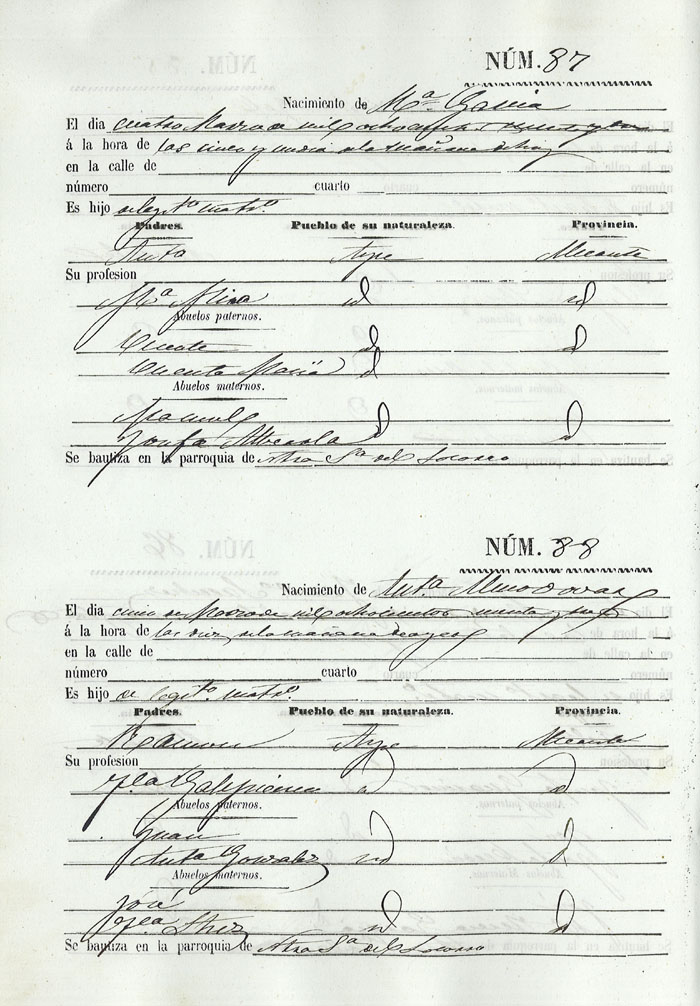 NÚM. 87
Nacimiento de Mª Garcia
El dia cuatro Marzo de mil ochocientos
á la hora de las cinco y media de la mañana de hoy
en la calle de
número cuarto
Es hijo de legitº matrº
Padres. Pueblo de su naturaleza. Provincia.
Aspe Alicante
Su profesion
Mª id id
Abuelos paternos.
Vicente id id
Vicenta Maria id
Abuelos maternos.
Manuel
Josefa Alberola id id
Se bautiza en la parroquia de Ntra Sª del Socorro
NÚM. 88
Nacimiento de Antª Almodovar
El dia cinco de Marzo de mil ochocientos
á la hora de las diez de la mañana de ayer
en la calle de
número cuarto
Es hijo de legitº matrº
Padres. Pueblo de su naturaleza. Provincia.
Ramon Aspe Alicante
Su profesion
id id
Abuelos paternos.
Juan
Antª Gonzalez id id
Abuelos maternos.
José
id id
Se bautiza en la parroquia de Ntra Sª del Socorro